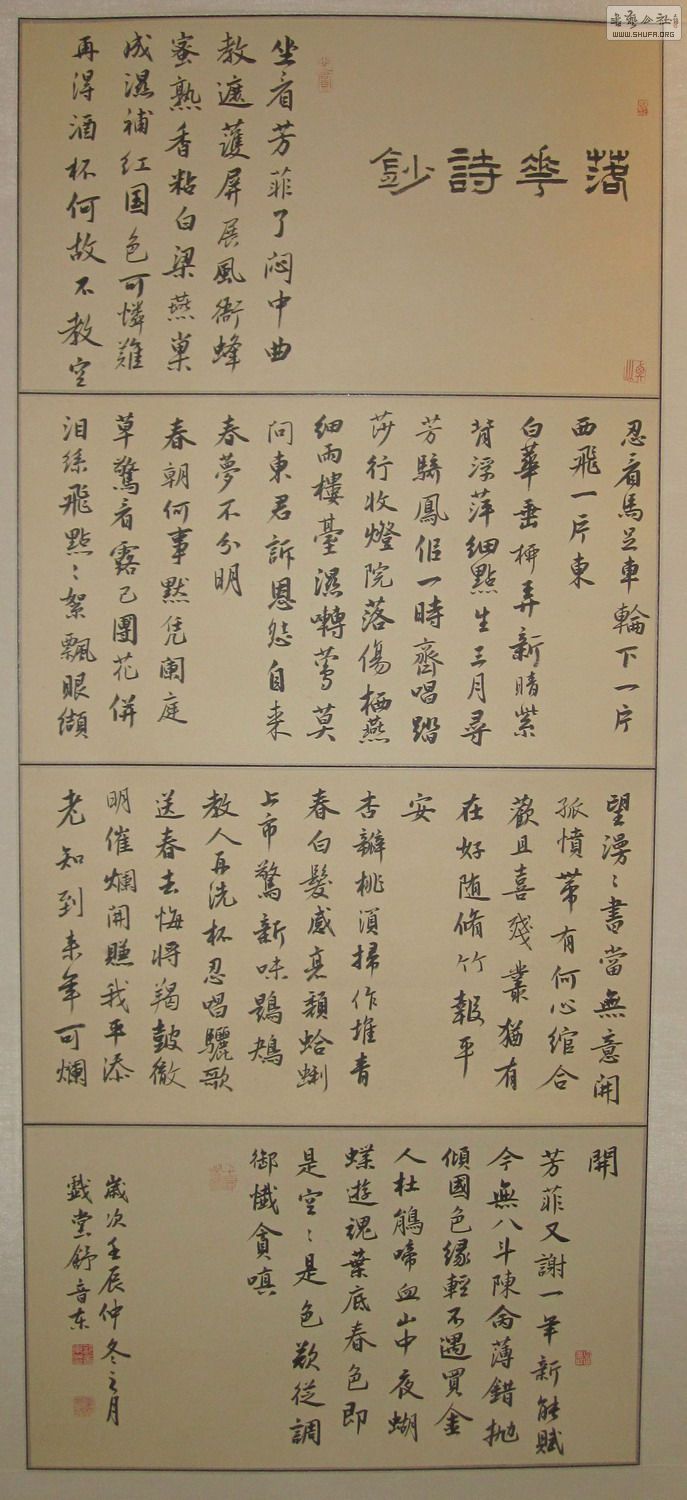 书艺公社
WWW.SHUFA.ORG
落花詩鈔
坐看芳菲了闷中曲
教遮護屏展風衙蜂
蜜熟香粘白梁燕巢
成濕補红国色可憐難
再得酒杯何故不教空
忍看馬足車輪下一片
西飛一片東
白華垂柳弄新晴紫
背浮萍細點生三月尋
芳騎鳳侣一時齊唱踏
莎行收燈院落傷栖燕
细雨樓臺濕囀莺莫
问東君訴恩怨自来
春夢不分明
春朝何事默凭闌庭
草驚看露已團花併
泪絲飛點〻絮飄眼纈
望漫〻書當無意開
孤憤帶有何心綰合
歡且喜殘叢猶有
在好随脩竹報平
安
杏瓣桃須掃作堆青
春白髮感衰頹蛤蜊
上市驚新味鶗鴂
教人再洗杯忍唱驪歌
送春去悔將羯鼓徹
明催爛開賺我平添
老知到来年可爛
開
芳菲又謝一年新能賦
今無八斗陳命薄錯抛
傾國色缘輕不遇買金
人杜鵑啼血山中夜蝴
蝶遊魂葉底春色即
是空〻是色欲從調
御懺貪嗔
歲次壬辰仲冬之月
戲堂舒音东